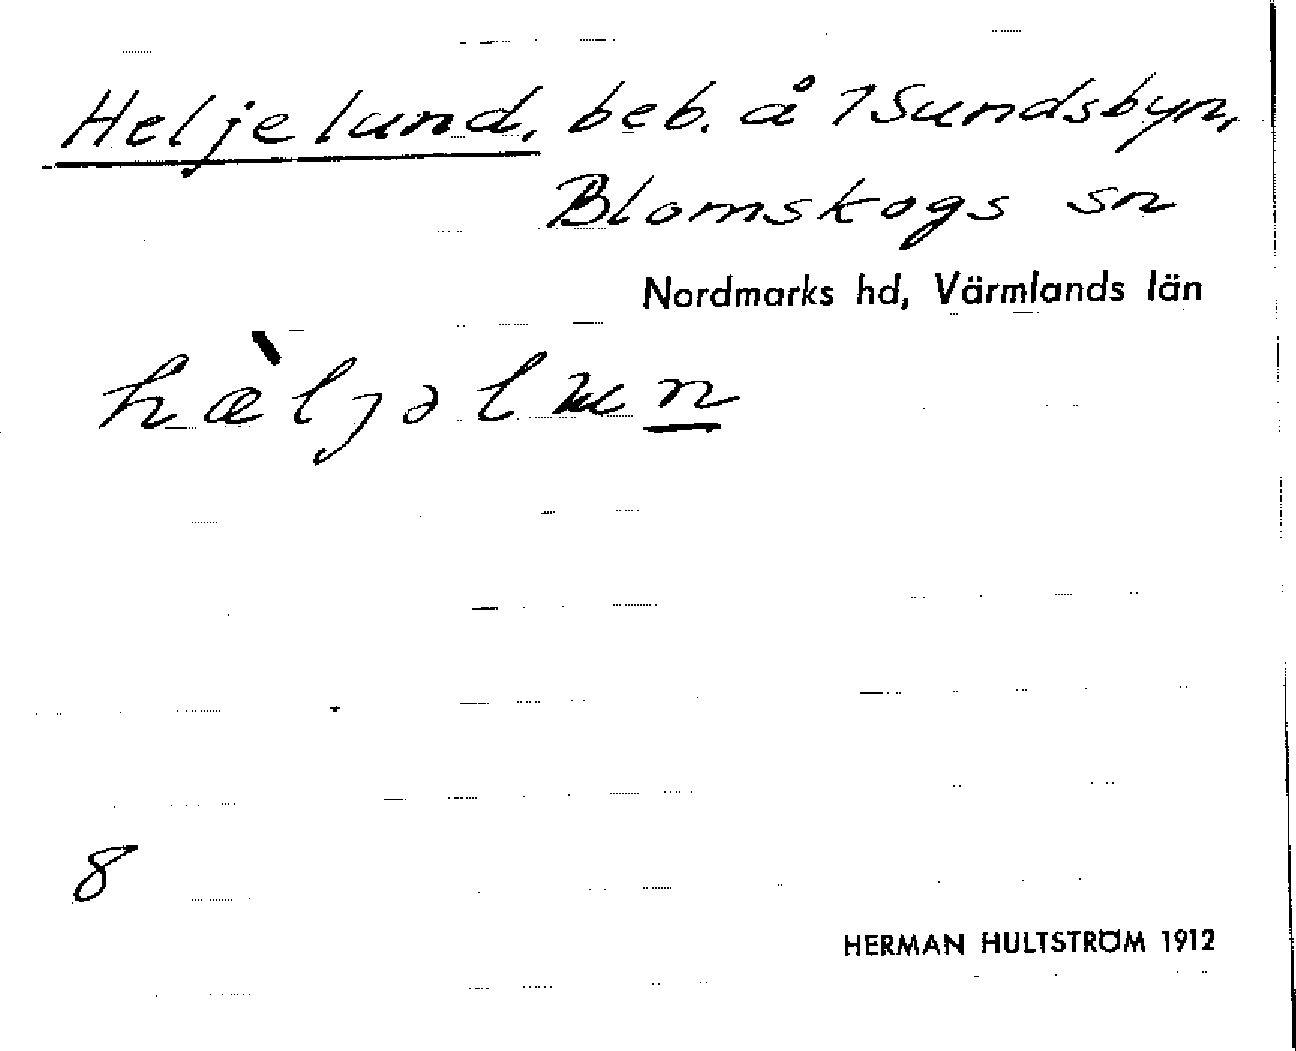 Heljelund, beb. å 1 Sundsbyn,
Blomskogs sn
Nordmarks hd, Värmlands län
hæ̀ljəlun
8
HERMAN HULTSTRÖM 1912